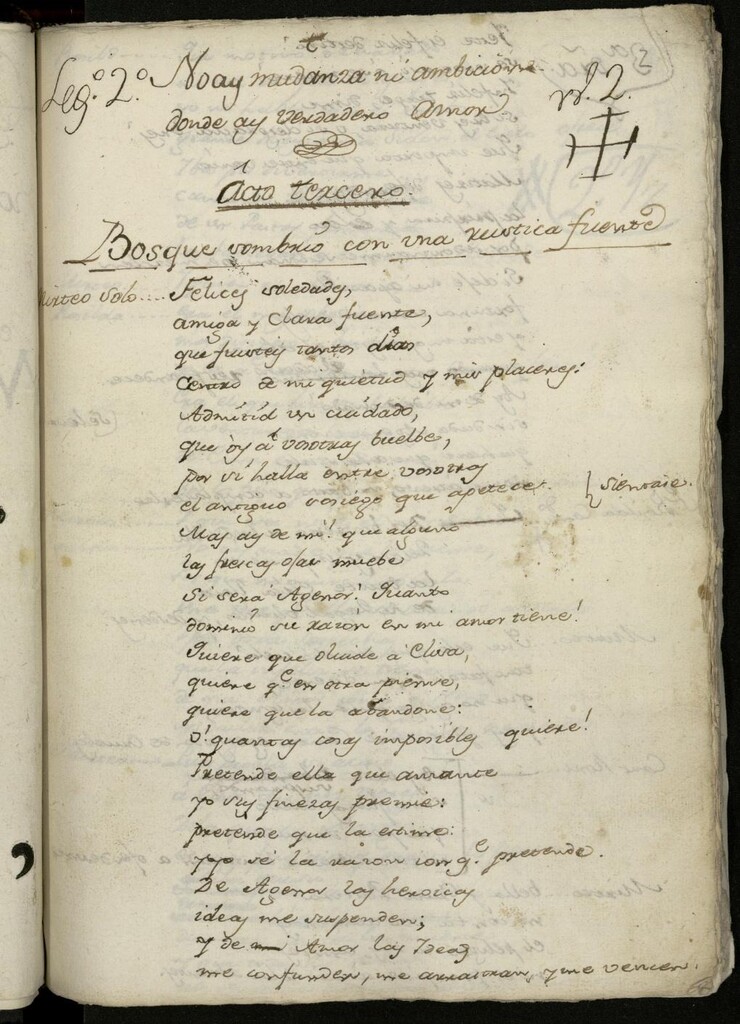 Leg.º 2.º No ay mudanza ni ambicion
donde ay verdadero Amor
nº 2.
Acto tercero.
Bosque sombrio con una rustica fuente
Mirteo solo.... Felices soledades,
amiga y clara fuente,
que fuisteis tantos dias
Centro de mi quietud y mis placeres:
Admitid un cuidado,
que oy a vosotras buelbe,
por si halla entre vosotras
el antiguo sosiego que apetece. sientase.
Mas ay de mi! que alguno
las frescas ojas muebe
Si será Agenor! Quanto
dominio su razon en mi amor tiene!
Quiere que olvide a Elisa,
quiere q.e en otra piense,
quiere que la abandone:
O! quantas cosas imposibles quiere!
Pretende ella que amante
yo sus finezas premie:
pretende que la estime:
y yo sé la razon con q.e pretende.
De Agenor las heroicas
ideas me suspenden;
y de mi Amor las Ideas
me confunden, me arrastran, y me vencen.